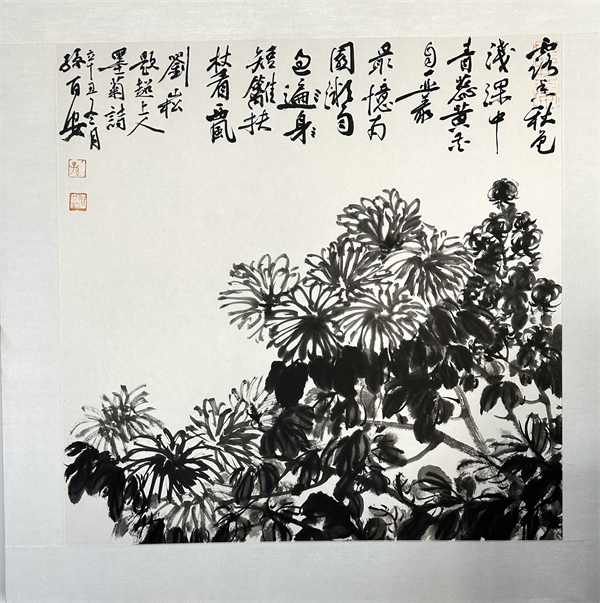 露 秋色
淺深中
青蕊黃花
自一叢
最憶
園
遍身
短籬扶
杖看西風
劉崧
題超上人
墨菊詩
辛丑冬月
孫百安